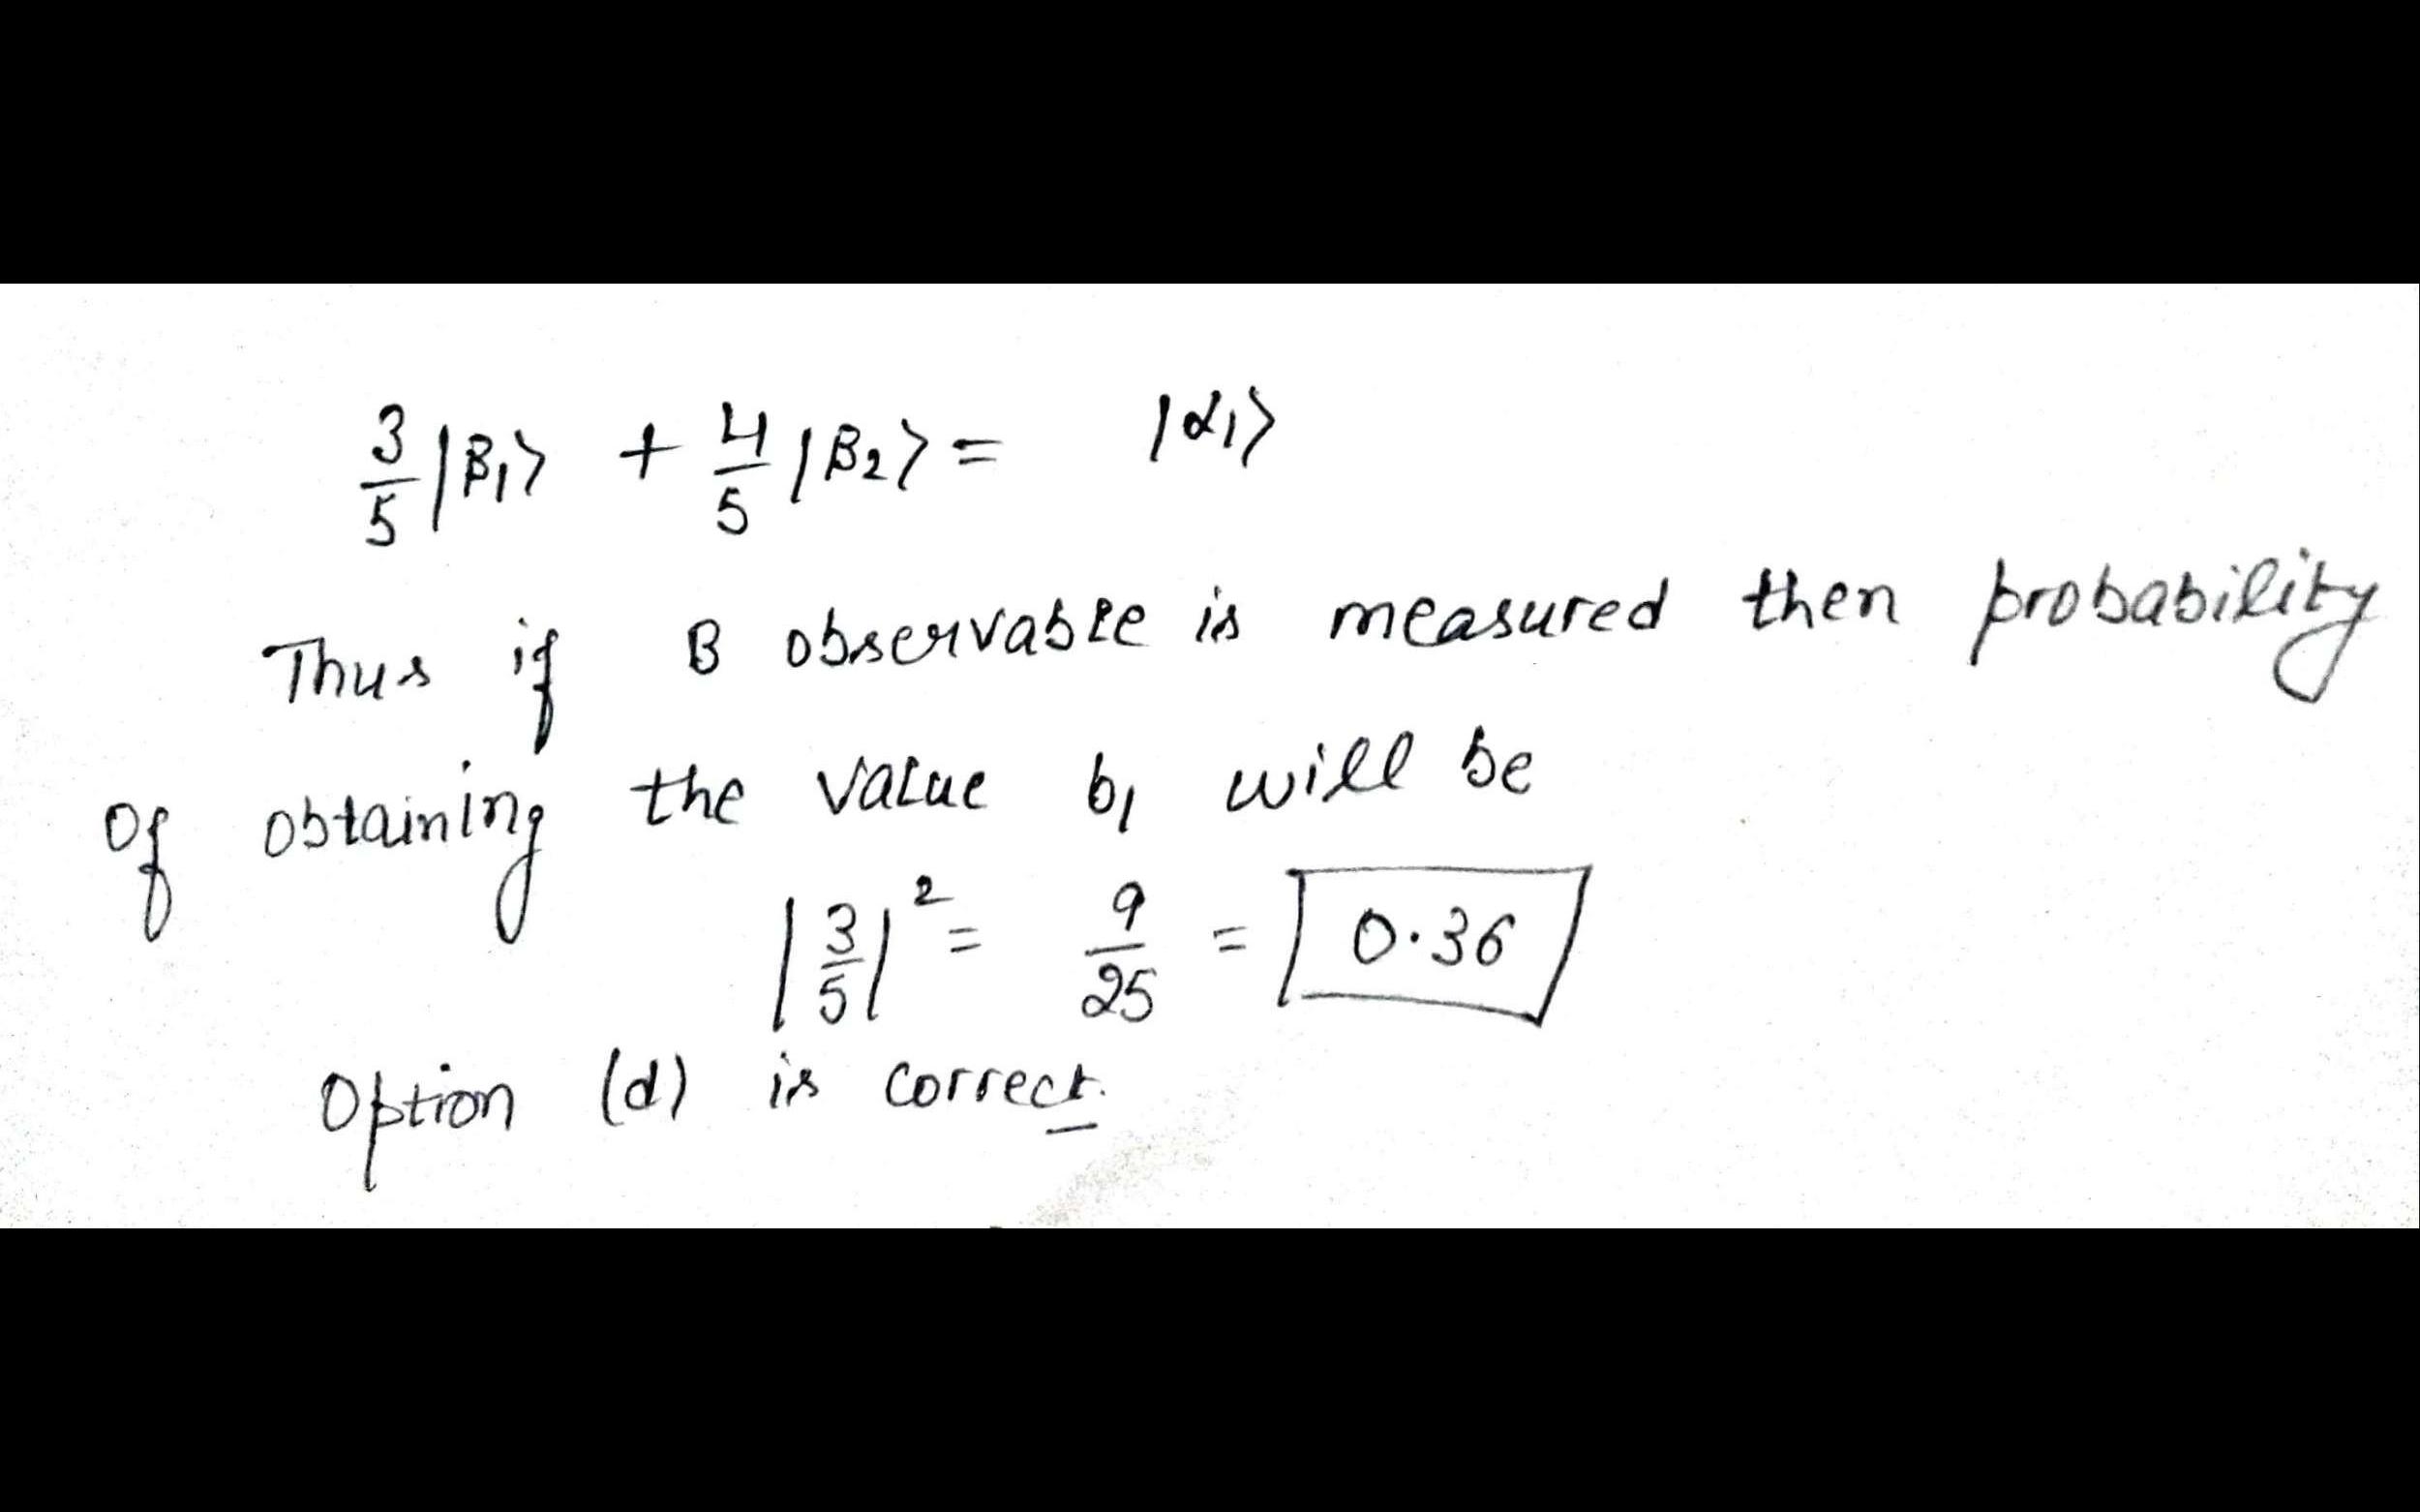 3/5 |β1⟩ + 4/5 |β2⟩ = |α1⟩
Thus if B observable is measured then probability
Of obtaining the value b1 will be
|3/5|² = 9/25 = 0.36
Option (d) is correct.